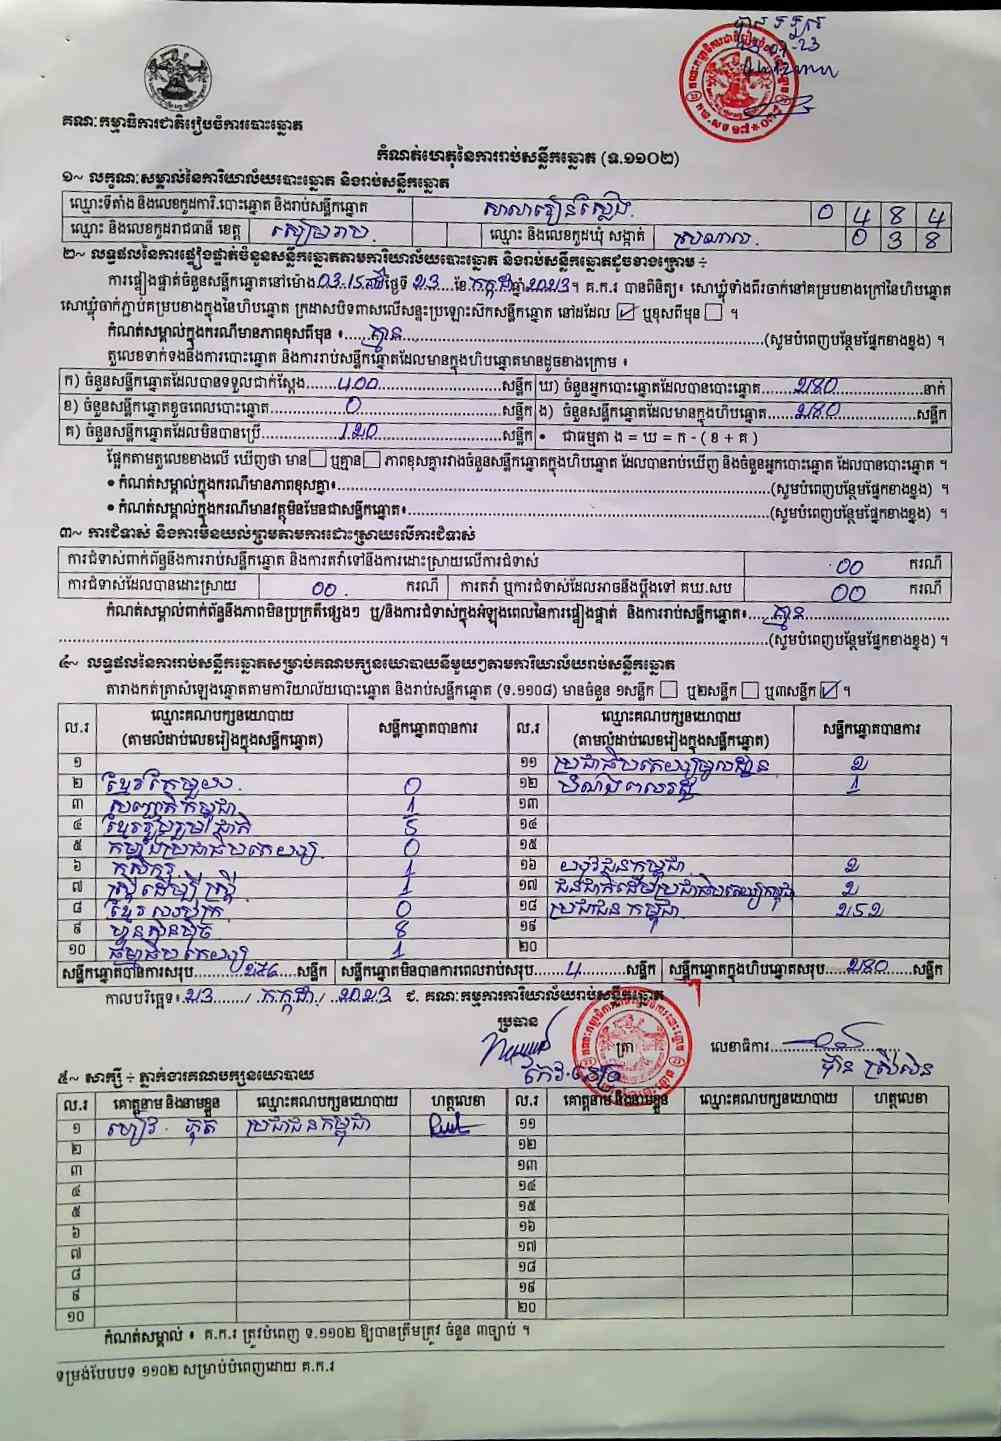 គណៈកម្មាធិការជាតិរៀបចំការបោះឆ្នោត
កំណត់ហេតុនៃការរាប់សន្លឹកឆ្នោត (ទ.១១០២)
១~ លក្ខណៈសម្គាល់នៃការិយាល័យបោះឆ្នោត និងរាប់សន្លឹកឆ្នោត
ឈ្មោះទីតាំង និងលេខកូដការិ.បោះឆ្នោត និងរាប់សន្លឹកឆ្នោត សាលារៀនស្លែង 0 4 8 4
ឈ្មោះ និងលេខកូដរាជធានី ខេត្ត សៀមរាប ឈ្មោះ និងលេខកូដឃុំ សង្កាត់ 0 3 8
២~ លទ្ធផលនៃការផ្ទៀងផ្ទាត់ចំនួនសន្លឹកឆ្នោតតាមការិយាល័យបោះឆ្នោត និងរាប់សន្លឹកឆ្នោតដូចខាងក្រោម ÷
ការផ្ទៀងផ្ទាត់ចំនួនសន្លឹកឆ្នោតនៅម៉ោង 03:15 ថ្ងៃទី 23 ខែ កក្កដា ឆ្នាំ 2023 ។ គ.ក.រ បានពិនិត្យ៖ សោឃ្លុំទាំងពីរចាក់នៅគម្របខាងក្រៅនៃហិបឆ្នោត
សោឃ្លុំចាក់ភ្ជាប់គម្របខាងក្នុងនៃហិបឆ្នោត ក្រដាសបិទពាសលើសន្ទះប្រឡោះស៊កសន្លឹកឆ្នោត នៅដដែល ☑ ឬខុសពីមុន ☐ ។
កំណត់សម្គាល់ក្នុងករណីមានភាពខុសពីមុន ៖ គ្មាន (សូមបំពេញបន្ថែមផ្នែកខាងខ្នង) ។
តួលេខទាក់ទងនឹងការបោះឆ្នោត និងការរាប់សន្លឹកឆ្នោតដែលមានក្នុងហិបឆ្នោតមានដូចខាងក្រោម ៖
ក) ចំនួនសន្លឹកឆ្នោតដែលបានទទួលជាក់ស្តែង 400 សន្លឹក ឃ) ចំនួនអ្នកបោះឆ្នោតដែលបានបោះឆ្នោត 280 នាក់
ខ) ចំនួនសន្លឹកឆ្នោតខូចពេលបោះឆ្នោត 0 សន្លឹក ង) ចំនួនសន្លឹកឆ្នោតដែលមានក្នុងហិបឆ្នោត 280 សន្លឹក
គ) ចំនួនសន្លឹកឆ្នោតដែលមិនបានប្រើ 120 សន្លឹក • ជាធម្មតា ង = ឃ = ក - ( ខ + គ )
ផ្អែកតាមតួលេខខាងលើ ឃើញថា មាន ☐ ឬគ្មាន ☐ ភាពខុសគ្នារវាងចំនួនសន្លឹកឆ្នោតក្នុងហិបឆ្នោត ដែលបានរាប់ឃើញ និងចំនួនអ្នកបោះឆ្នោត ដែលបានបោះឆ្នោត ។
• កំណត់សម្គាល់ក្នុងករណីមានភាពខុសគ្នា៖ (សូមបំពេញបន្ថែមផ្នែកខាងខ្នង) ។
• កំណត់សម្គាល់ក្នុងករណីមានវត្ថុមិនមែនជាសន្លឹកឆ្នោត៖ (សូមបំពេញបន្ថែមផ្នែកខាងខ្នង) ។
៣~ ការជំទាស់ និងការមិនយល់ព្រមតាមការដោះស្រាយលើការជំទាស់
ការជំទាស់ពាក់ព័ន្ធនឹងការរាប់សន្លឹកឆ្នោត និងការតវ៉ាទៅនឹងការដោះស្រាយលើការជំទាស់ 00 ករណី
ការជំទាស់ដែលបានដោះស្រាយ 00 ករណី ការតវ៉ា ឬការជំទាស់ដែលអាចនឹងប្តឹងទៅ គឃ.សប 00 ករណី
កំណត់សម្គាល់ពាក់ព័ន្ធនឹងភាពមិនប្រក្រតីផ្សេងៗ ឬ/និងការជំទាស់ក្នុងអំឡុងពេលនៃការផ្ទៀងផ្ទាត់ និងការរាប់សន្លឹកឆ្នោត៖ គ្មាន
(សូមបំពេញបន្ថែមផ្នែកខាងខ្នង) ។
៤~ លទ្ធផលនៃការរាប់សន្លឹកឆ្នោតសម្រាប់គណបក្សនយោបាយនីមួយៗតាមការិយាល័យរាប់សន្លឹកឆ្នោត
តារាងកត់ត្រាសំឡេងឆ្នោតតាមការិយាល័យបោះឆ្នោត និងរាប់សន្លឹកឆ្នោត (ទ.១១០៨) មានចំនួន ១សន្លឹក ☐ ឬ២សន្លឹក ☐ ឬ៣សន្លឹក ☑ ។
ល.រ ឈ្មោះគណបក្សនយោបាយ (តាមលំដាប់លេខរៀងក្នុងសន្លឹកឆ្នោត) សន្លឹកឆ្នោតបានការ ល.រ ឈ្មោះគណបក្សនយោបាយ (តាមលំដាប់លេខរៀងក្នុងសន្លឹកឆ្នោត) សន្លឹកឆ្នោតបានការ
១ ១១ ប្រជាធិបតេយ្យមូលដ្ឋាន 2
២ ខ្មែរតែមួយ 0 ១២ 1
៣ សញ្ជាតិកម្ពុជា 1 ១៣
៤ ខ្មែររួបរួមជាតិ 5 ១៤
៥ កម្លាំងប្រជាធិបតេយ្យ 0 ១៥
៦ កសិករ 1 ១៦ យុវជនកម្ពុជា 2
៧ ស្ត្រីដើម្បីស្ត្រី 1 ១៧ ជនជាតិដើមប្រជាធិបតេយ្យកម្ពុជា 2
៨ ខ្មែរ 0 ១៨ ប្រជាជនកម្ពុជា 252
៩ ហ្វ៊ុនស៊ិនប៉ិច 8 ១៩
១០ ធម្មាធិបតេយ្យ 1 ២០
សន្លឹកឆ្នោតបានការសរុប 276 សន្លឹក សន្លឹកឆ្នោតមិនបានការពេលរាប់សរុប 4 សន្លឹក សន្លឹកឆ្នោតក្នុងហិបឆ្នោតសរុប 280 សន្លឹក
កាលបរិច្ឆេទ៖ 23 / កក្កដា / 2023 ជ. គណៈកម្មការការិយាល័យរាប់សន្លឹកឆ្នោត
ប្រធាន ត្រា លេខាធិការ
៥~ សាក្សី ÷ ភ្នាក់ងារគណបក្សនយោបាយ
ល.រ គោត្តនាម និងនាមខ្លួន ឈ្មោះគណបក្សនយោបាយ ហត្ថលេខា ល.រ គោត្តនាម និងនាមខ្លួន ឈ្មោះគណបក្សនយោបាយ ហត្ថលេខា
១ ប្រជាជនកម្ពុជា ១១
២ ១២
៣ ១៣
៤ ១៤
៥ ១៥
៦ ១៦
៧ ១៧
៨ ១៨
៩ ១៩
១០ ២០
កំណត់សម្គាល់ ៖ គ.ក.រ ត្រូវបំពេញ ទ.១១០២ ឱ្យបានត្រឹមត្រូវ ចំនួន ៣ច្បាប់ ។
ទម្រង់បែបបទ ១១០២ សម្រាប់បំពេញដោយ គ.ក.រ